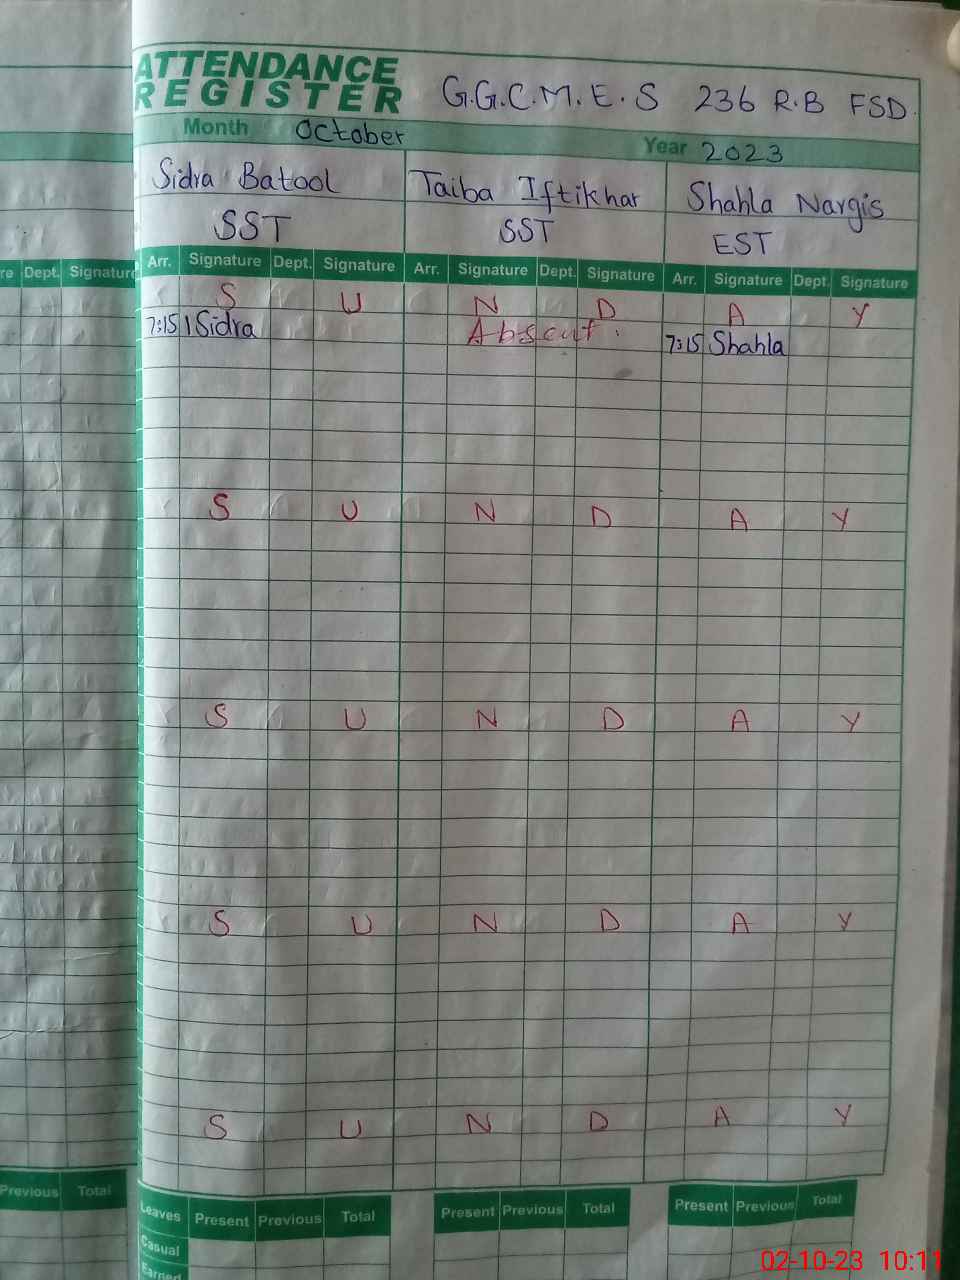 ATTENDANCE
REGISTER
G.G.C.M.E.S 236 R.B FSD.
Month October Year 2023
Sidra Batool Taiba Iftikhar Shahla Nargis
SST SST EST
Dept. Signature Arr. Signature Dept. Signature Arr. Signature Dept. Signature Arr. Signature Dept. Signature
S U N D A Y
7:15 Sidra Absent. 7:15 Shahla
S U N D A Y
S U N D A Y
S U N D A Y
S U N D A Y
Previous Total Leaves Present Previous Total Present Previous Total Present Previous Total
Casual
Earned
02-10-23 10:11